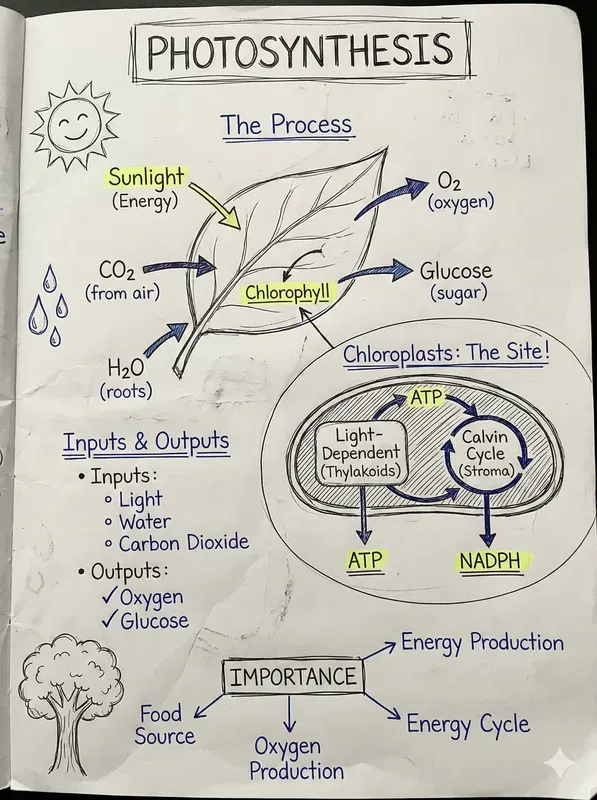 PHOTOSYNTHESIS
The Process
Sunlight
(Energy)
O₂
(oxygen)
CO₂
(from air)
Glucose
(sugar)
Chlorophyll
H₂O
(roots)
Chloroplasts: The Site!
ATP
Light-
Dependent
(Thylakoids)
Calvin
Cycle
(Stroma)
ATP
NADPH
Inputs & Outputs
• Inputs:
∘ Light
∘ Water
∘ Carbon Dioxide
• Outputs:
✓ Oxygen
✓ Glucose
IMPORTANCE
Energy Production
Food
Source
Oxygen
Production
Energy Cycle